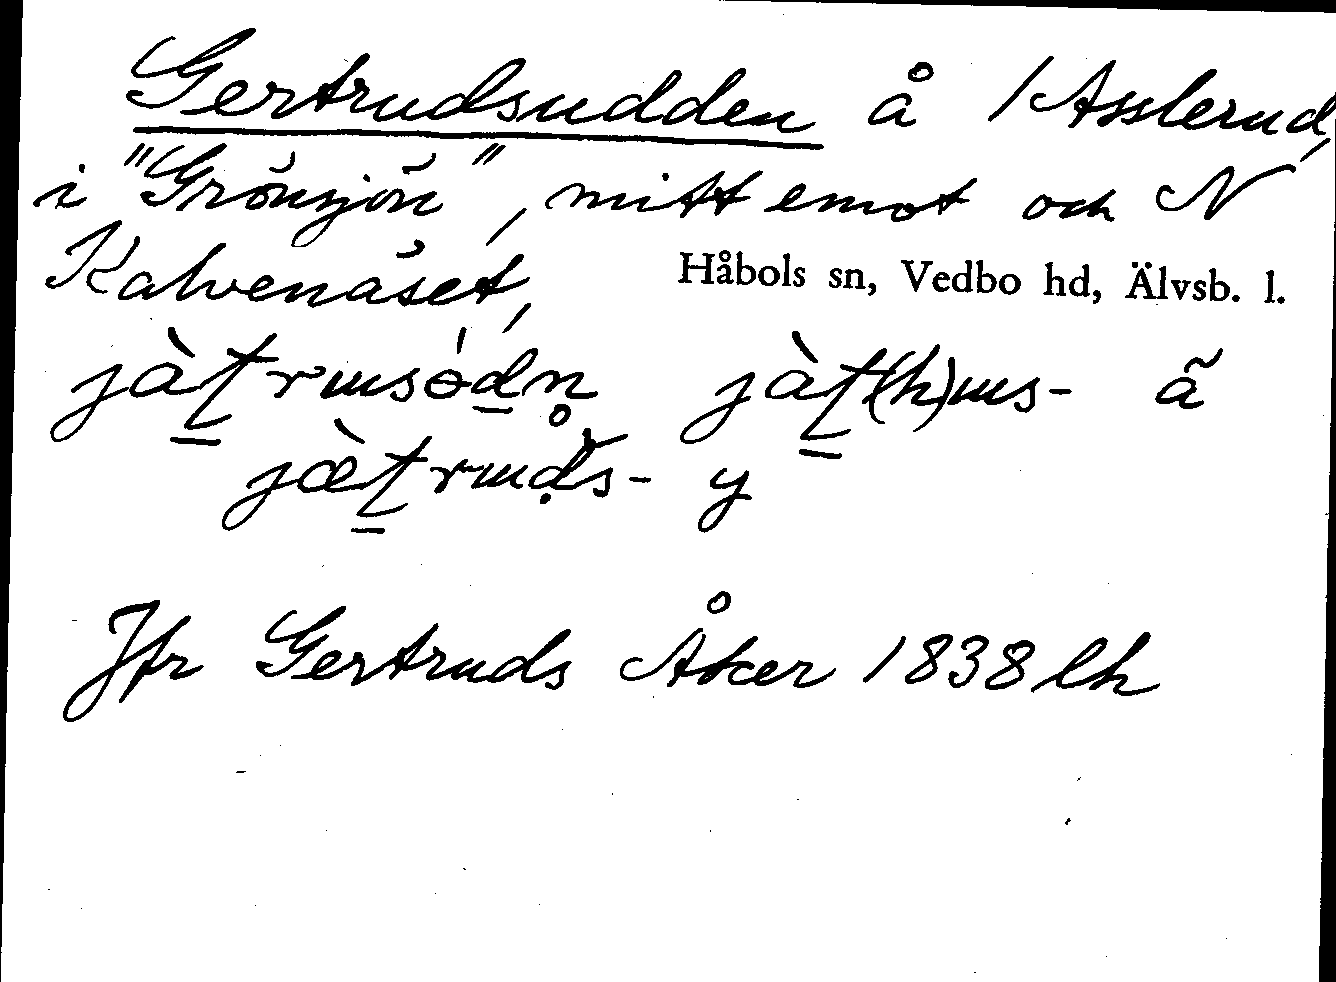 Gertrudsudden å 1 Asslerud,
i "Grönsjön", mitt emot och N
Kalvenäset, Håbols sn, Vedbo hd, Älvsb. l.
jàt̲rɯsódn̥ jàt̲(h)ɯs- ä
jæ̀t̲rɯḍs- y
Jfr Gertruds Åker 1838 lh